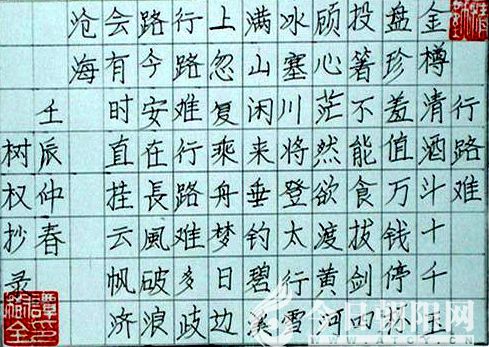 行路难
金樽清酒斗十千玉
盘珍羞值万钱停杯
投箸不能食拔剑四
顾心茫然欲渡黄河
冰塞川将登太行雪
满山闲来垂钓碧溪
上忽复乘舟梦日边
行路难行路难多歧
路今安在長風破浪
会有时直挂云帆济
沧海
壬辰仲春
树权抄录
今日朝阳网